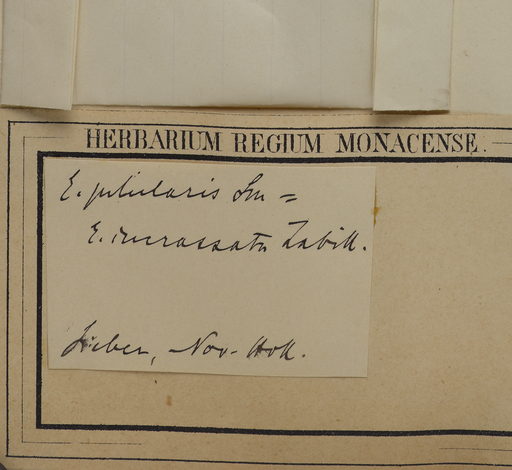 HERBARIUM REGIUM MONACENSE.
E. pilularis Sm =
E. incrassata Labill.
Sieber, Nov. Holl.